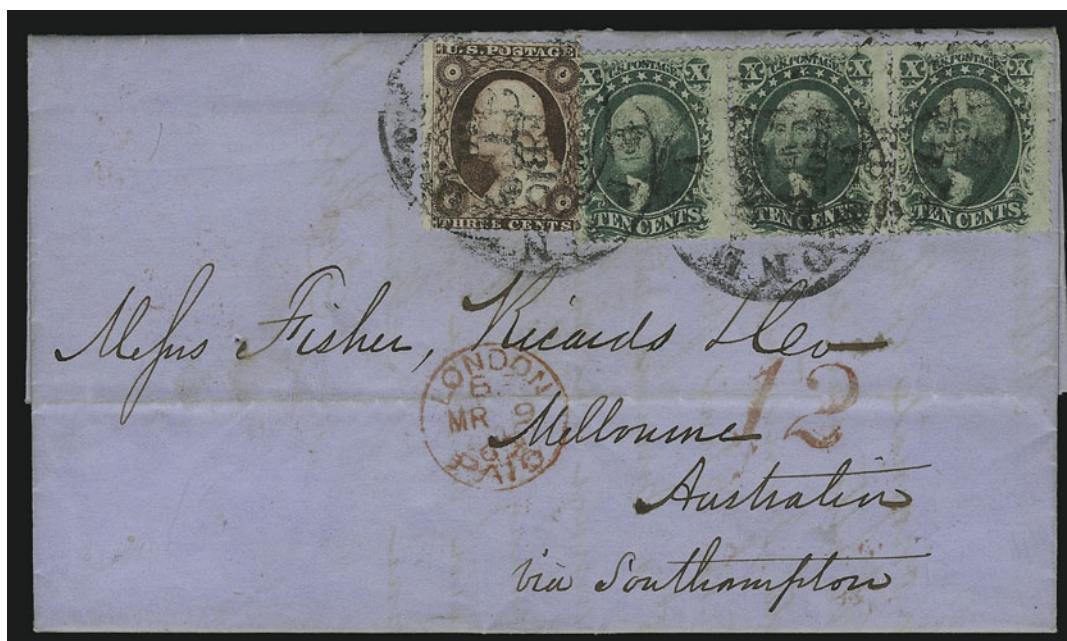 U.S. POSTAGE
THREE CENTS
X U.S. POSTAGE X
TEN CENTS
X U.S. POSTAGE X
TEN CENTS
X U.S. POSTAGE X
TEN CENTS
Messrs Fisher, Ricards & Co
LONDON
MR 9
PAID
12
Melbourne
Australia
via Southampton